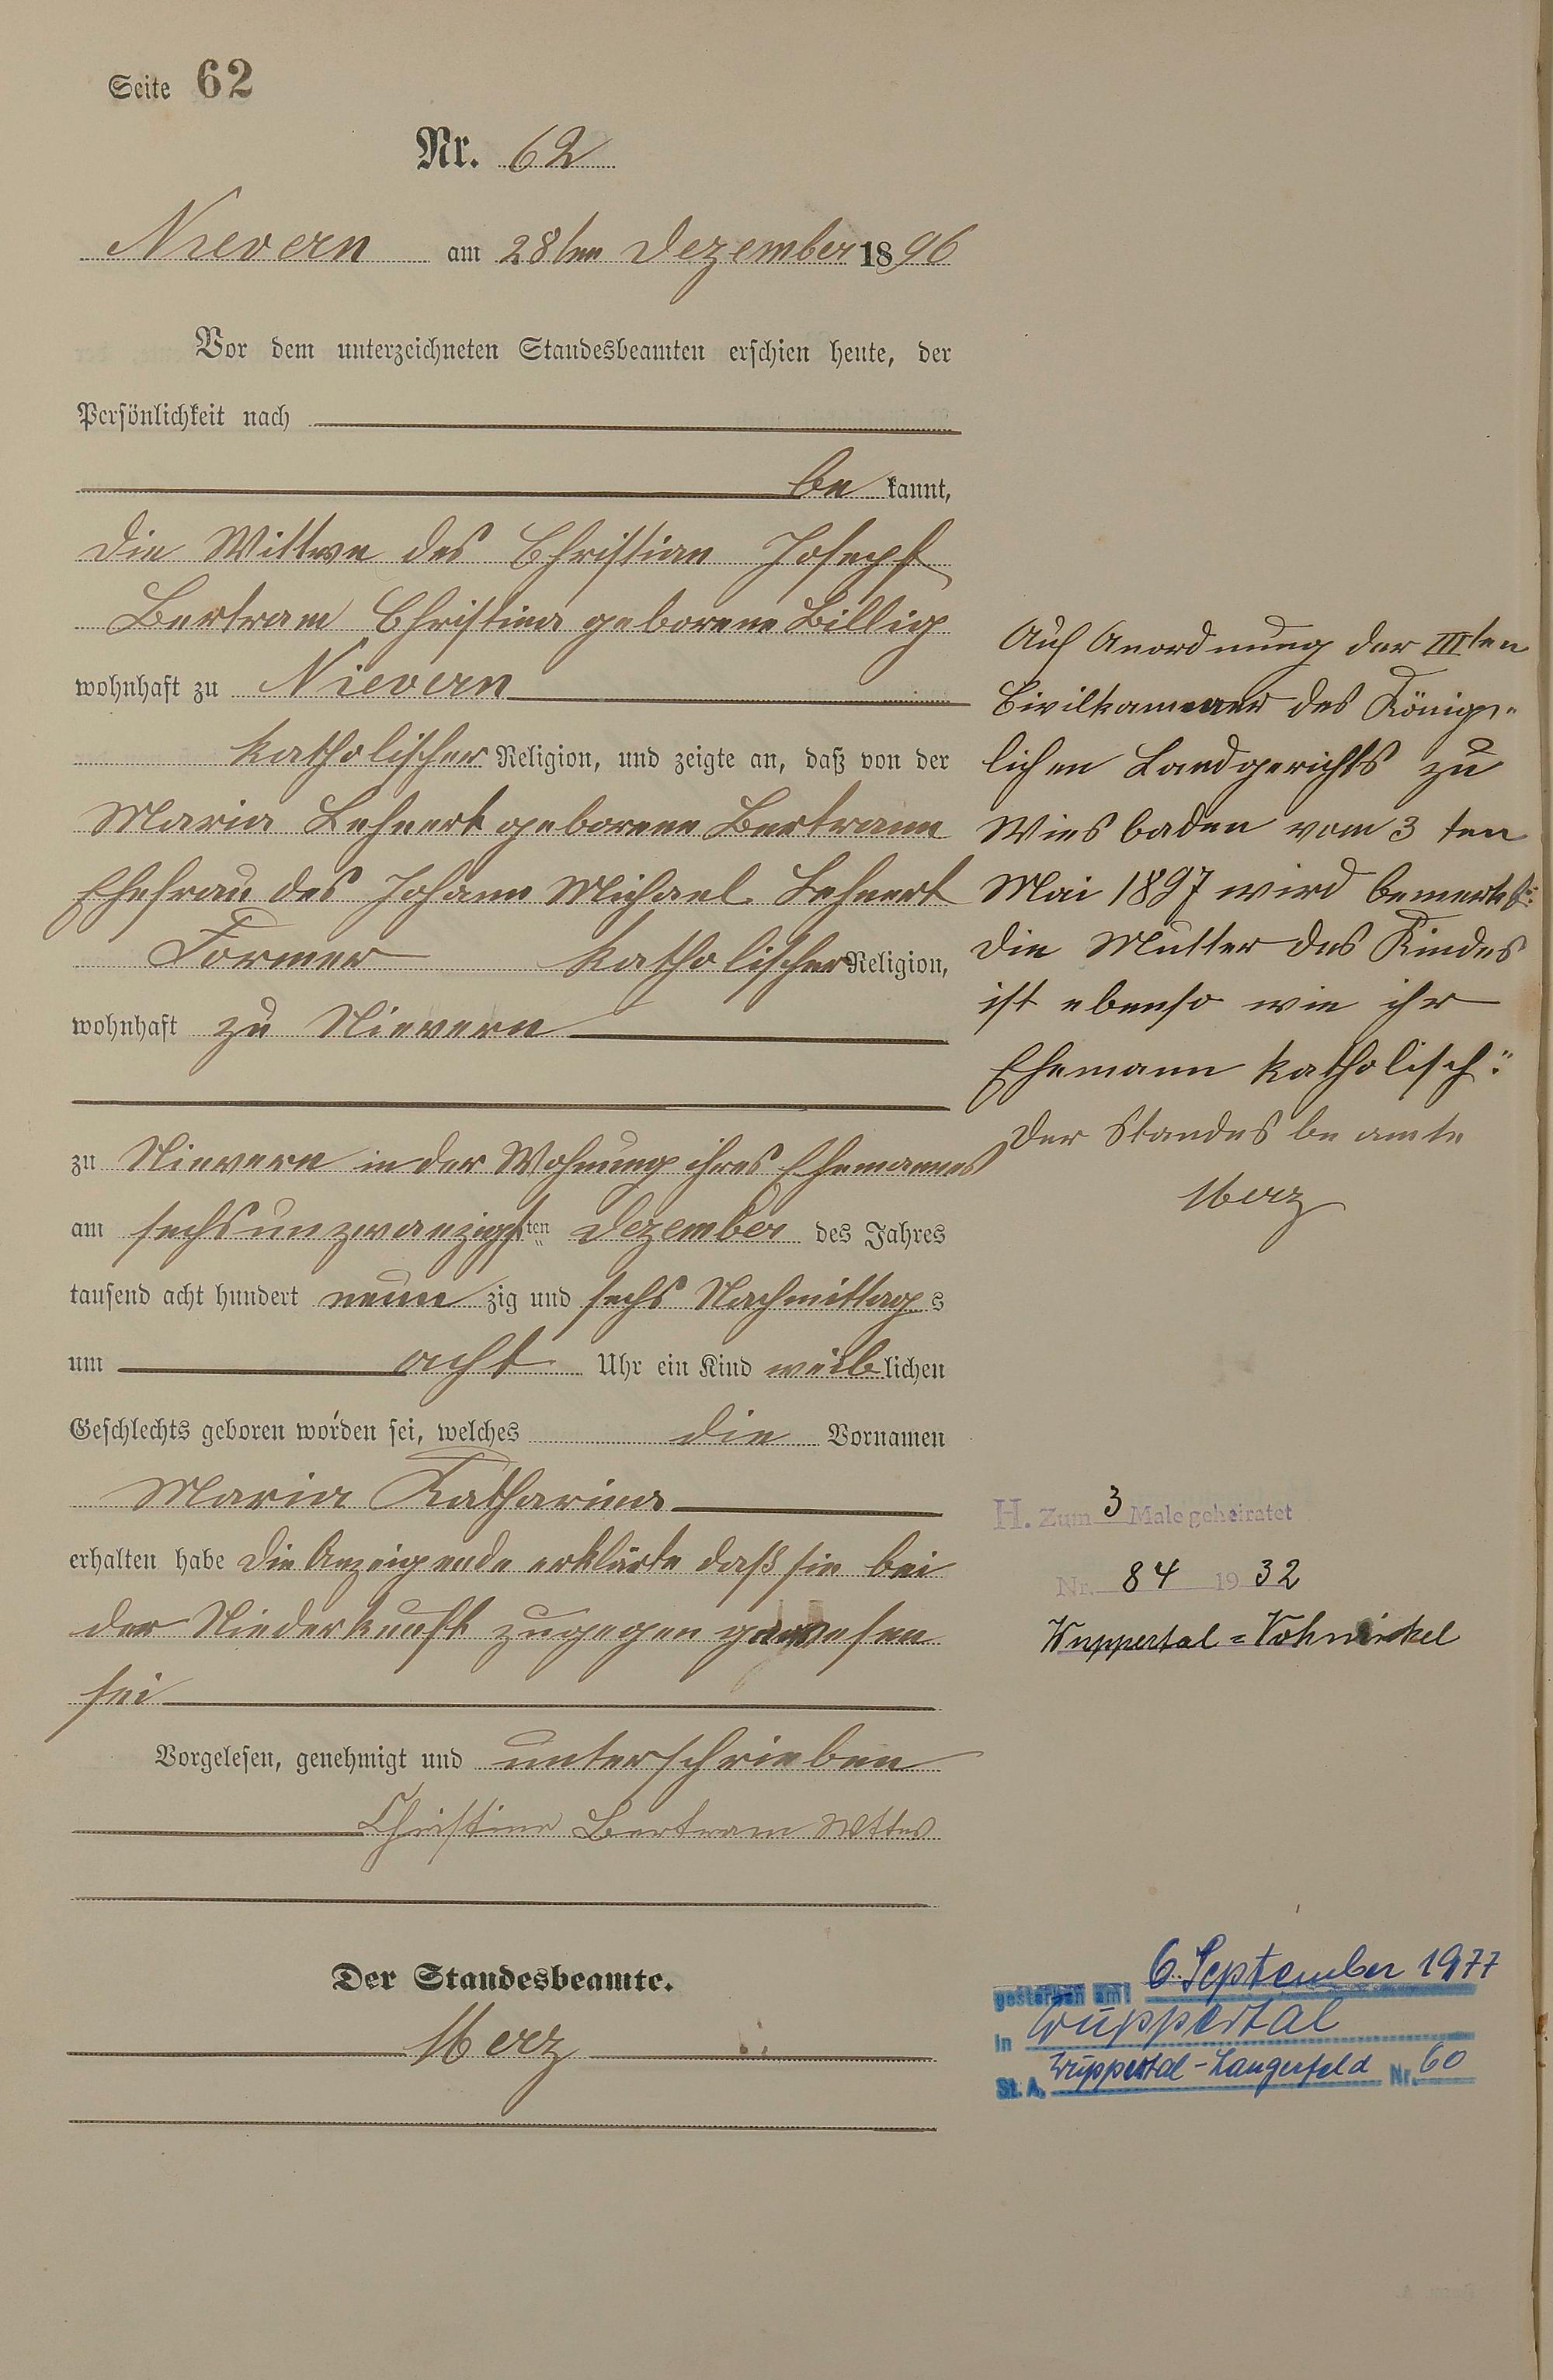 Seite 62
Nr. 62
Nievern am 28ten Dezember 1896
Vor dem unterzeichneten Standesbeamten erschien heute, der
Persönlichkeit nach
be kannt,
die Wittwe des Christian Joseph
Bertram Christina geborene Billig
wohnhaft zu Nievern
katholischer Religion, und zeigte an, daß von der
Maria Lehnert geborene Bertram
Ehefrau des Johann Michael Lehnert
Former katholischer Religion,
wohnhaft zu Nievern
zu Nievern in der Wohnung ihres Ehemannes
am sechsunzwanzigsten Dezember des Jahres
tausend acht hundert neun zig und sechs Nachmittags
um acht Uhr ein Kind weiblichen
Geschlechts geboren worden sei, welches die Vornamen
Maria Katharina
erhalten habe die Anzeigende erklärte daß sie bei
der Niederkunft zugegen gewesen
sei
Vorgelesen, genehmigt und unterschrieben
Christina Bertram Wttwe
Der Standesbeamte.
Merz
Auf Anordnung der IIIten
Civilkammer des König-
lichen Landgerichts zu
Wiesbaden vom 3 ten
Mai 1897 wird bemerkt:
die Mutter des Kindes
ist ebenso wie ihr
Ehemann katholisch:"
Der Standesbeamte
Merz
H. Zum 3 Male geheiratet
Nr. 84 1932
Wuppertal=Vohwinkel
gestorben am: 6. September 1977
in Wuppertal
St. A. Wuppertal-Langerfeld Nr. 60